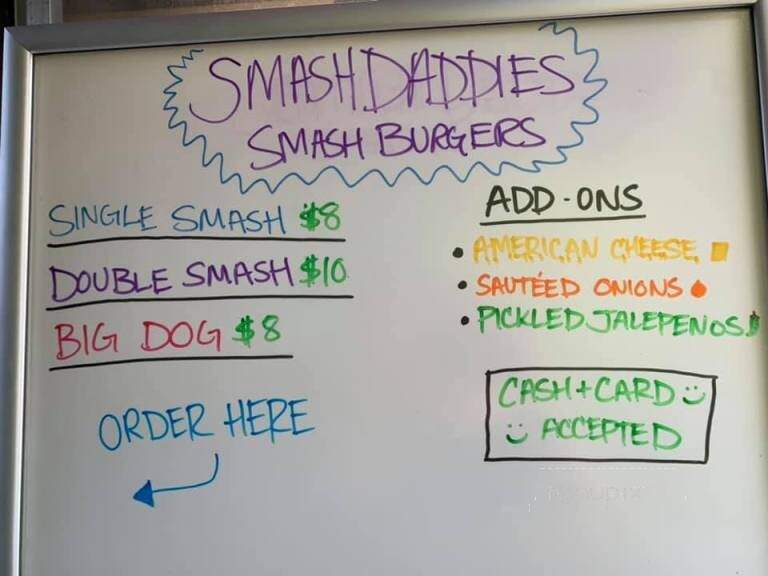 SMASHDADDIES
SMASH BURGERS
SINGLE SMASH $8
DOUBLE SMASH $10
BIG DOG $8
ORDER HERE
ADD-ONS
• AMERICAN CHEESE
• SAUTÉED ONIONS
• PICKLED JALEPENOS
CASH + CARD
ACCEPTED